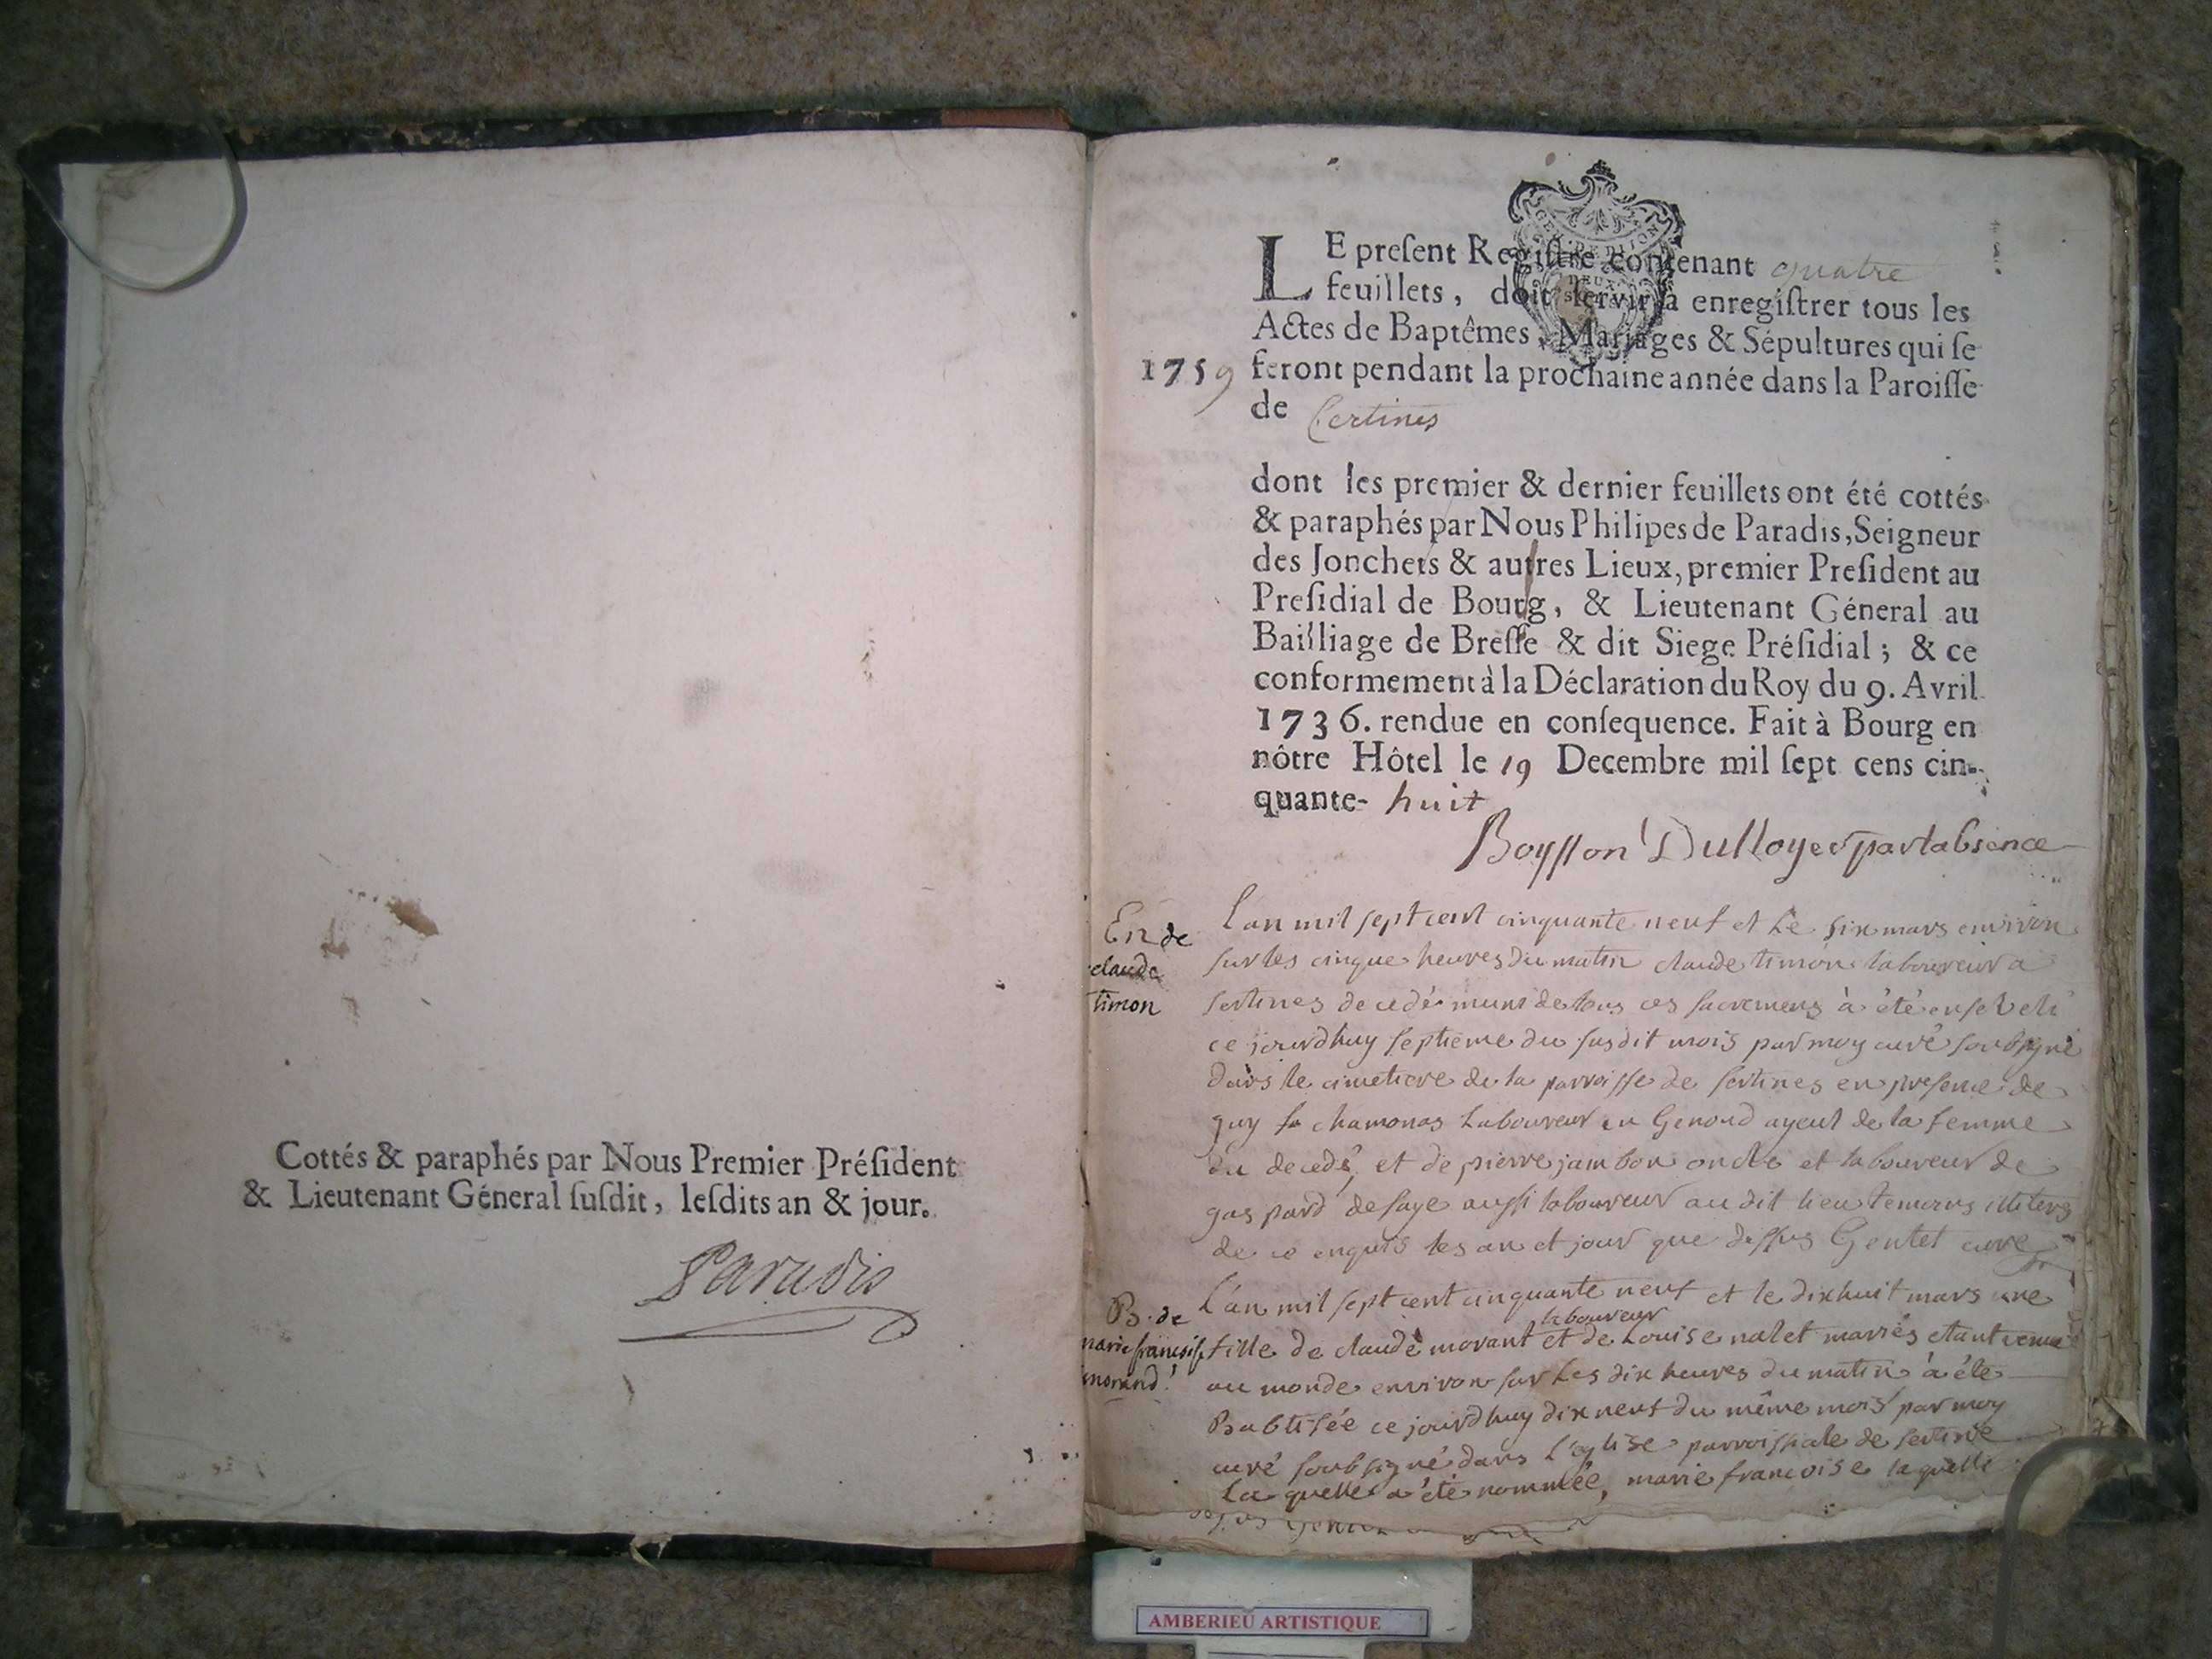 Cottés & paraphés par Nous Premier Préſident
& Lieutenant Géneral ſuſdit, leſdits an & jour.
Paradis
LE preſent Regiſtre contenant quatre
feuillets, doit ſervir à enregiſtrer tous les
Actes de Baptêmes, Mariages & Sépultures qui ſe
1759 feront pendant la prochaine année dans la Paroiſſe
de Certines
dont les premier & dernier feuillets ont été cottés
& paraphés par Nous Philipes de Paradis, Seigneur
des Jonchets & autres Lieux, premier Preſident au
Preſidial de Bourg, & Lieutenant Géneral au
Bailliage de Breſſe & dit Siege Préſidial ; & ce
conformement à la Déclaration du Roy du 9. Avril
1736. rendue en conſequence. Fait à Bourg en
nôtre Hôtel le 19 Decembre mil ſept cens cin-
quante- huit
par labsence
En de
claude
timon
L'an mil sept cent cinquante neuf et le six mars environ
sur les cinque heures du matin claude timon laboureur a
sertines decedé muni de tous ces sacremens à été enseveli
ce jourdhuy septieme du susdit mois par moy curé soubsigné
dans le cimetiere de la parroisse de sertines en presence de
guy chamonas laboureur Genoud ayeul de la femme
du decedé, et de pierre jambon oncle et laboureur de
gaspard defaye aussi laboureur au dit lieu temoins illiters
de ce enquis les an et jour que dessus Gentet curé
B. de
marie francoise
morand
L'an mil sept cent cinquante neuf et le dix huit mars une
laboureur
fille de claude morant et de Louise nalet mariés etant venue
au monde environ sur les dix heures du matin à été
Babtisée ce jourdhuy dix neuf du même mois par moy
curé soubsigné dans l'eglise parroissiale de sertine
La quelle a été nommée, marie francoise laquelle
AMBERIEU ARTISTIQUE